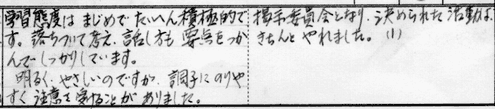 学習態度は まじめで たいへん積極的で
す。落ちついて考え、話し方も 要点をつか
んで しっかりしています。
明るく、やさしいのですが、調子にのりや
すく 注意を受けることが ありました。
掲示委員会となり、決められた活動は、
きちんと やれました。(1)